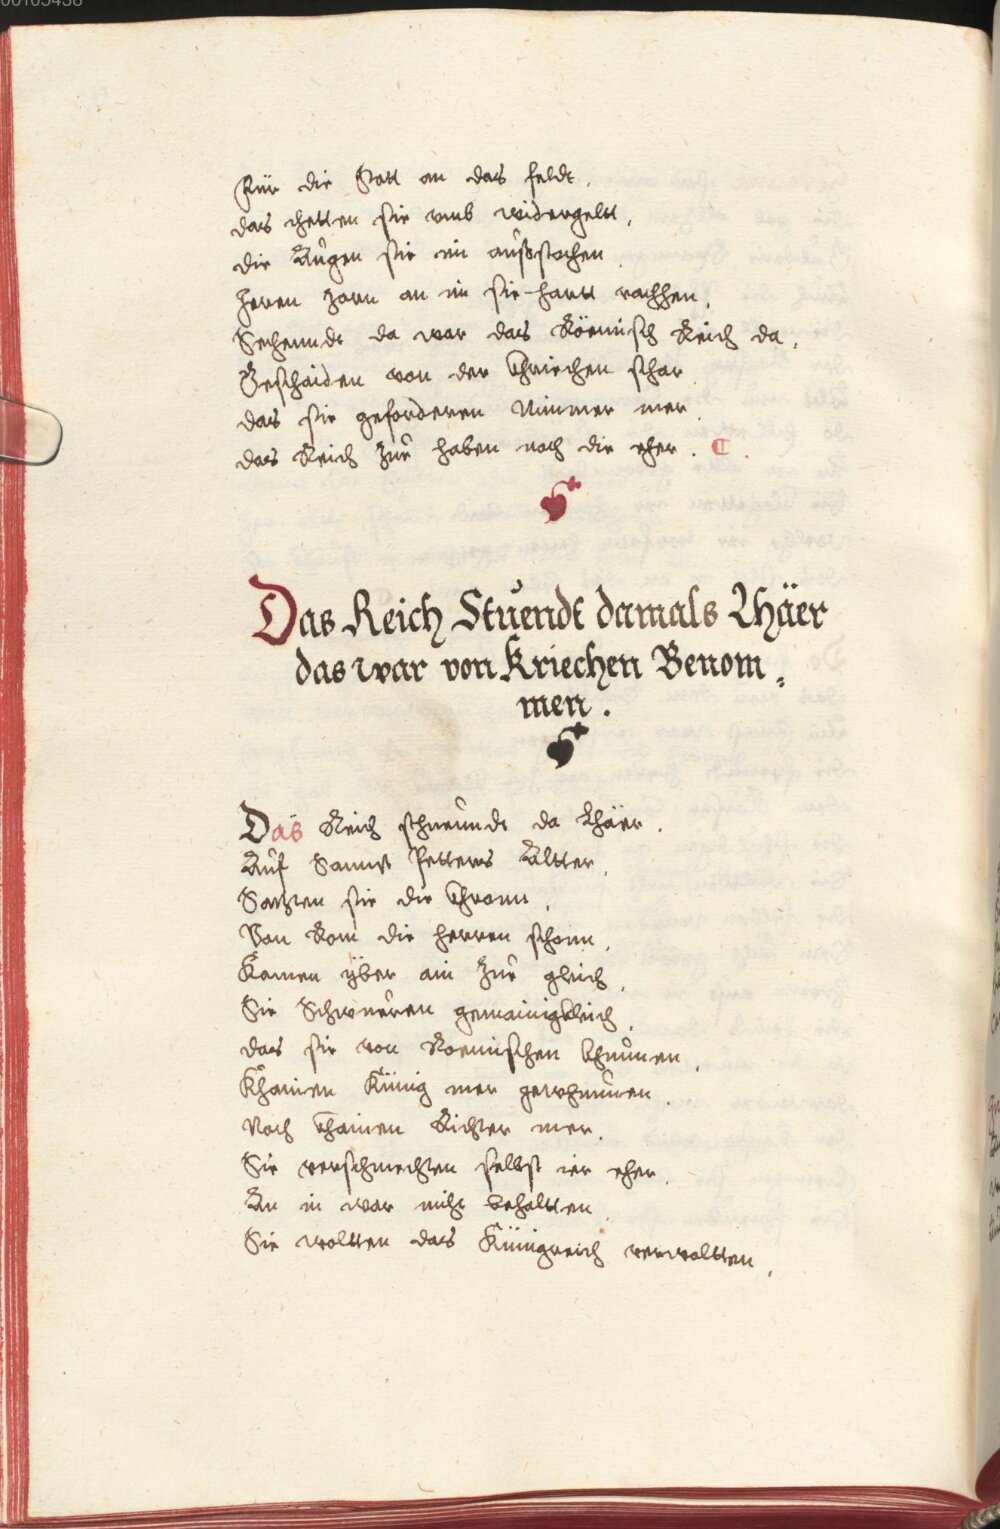 00105458
Für die Statt an das feldt,
das thetten sie vmb widergeltt,
die Augen sie im außstochen
Heren Zorn an im sie hartt rachhen,
Sechenndt da war das Röemisch Reich da,
Geschaiden von der Khriechen schar
das sie geforderen Nimmer mer
das Reich Zue haben nach die eher. C.
Das Reich Stuendt damals Lhäer
das war von Kriechen Benom⸗
men.
Das Reich stuenndt da Lhäer.
Auf Sannt Petters Altter,
Satzten sie die Chronn,
Von Rom die herren schonn,
Kamen yber ain Zue gleich,
Sie Schwueren gemainigkleich,
das sie von Roemischen Khunnen,
Khainen Künig mer gewhunnen,
Noch Khainen Richter mer.
Sie verschmechten selbst ier eher,
An in war nicht behaltten,
Sie woltten das Künigreich verwaltten,